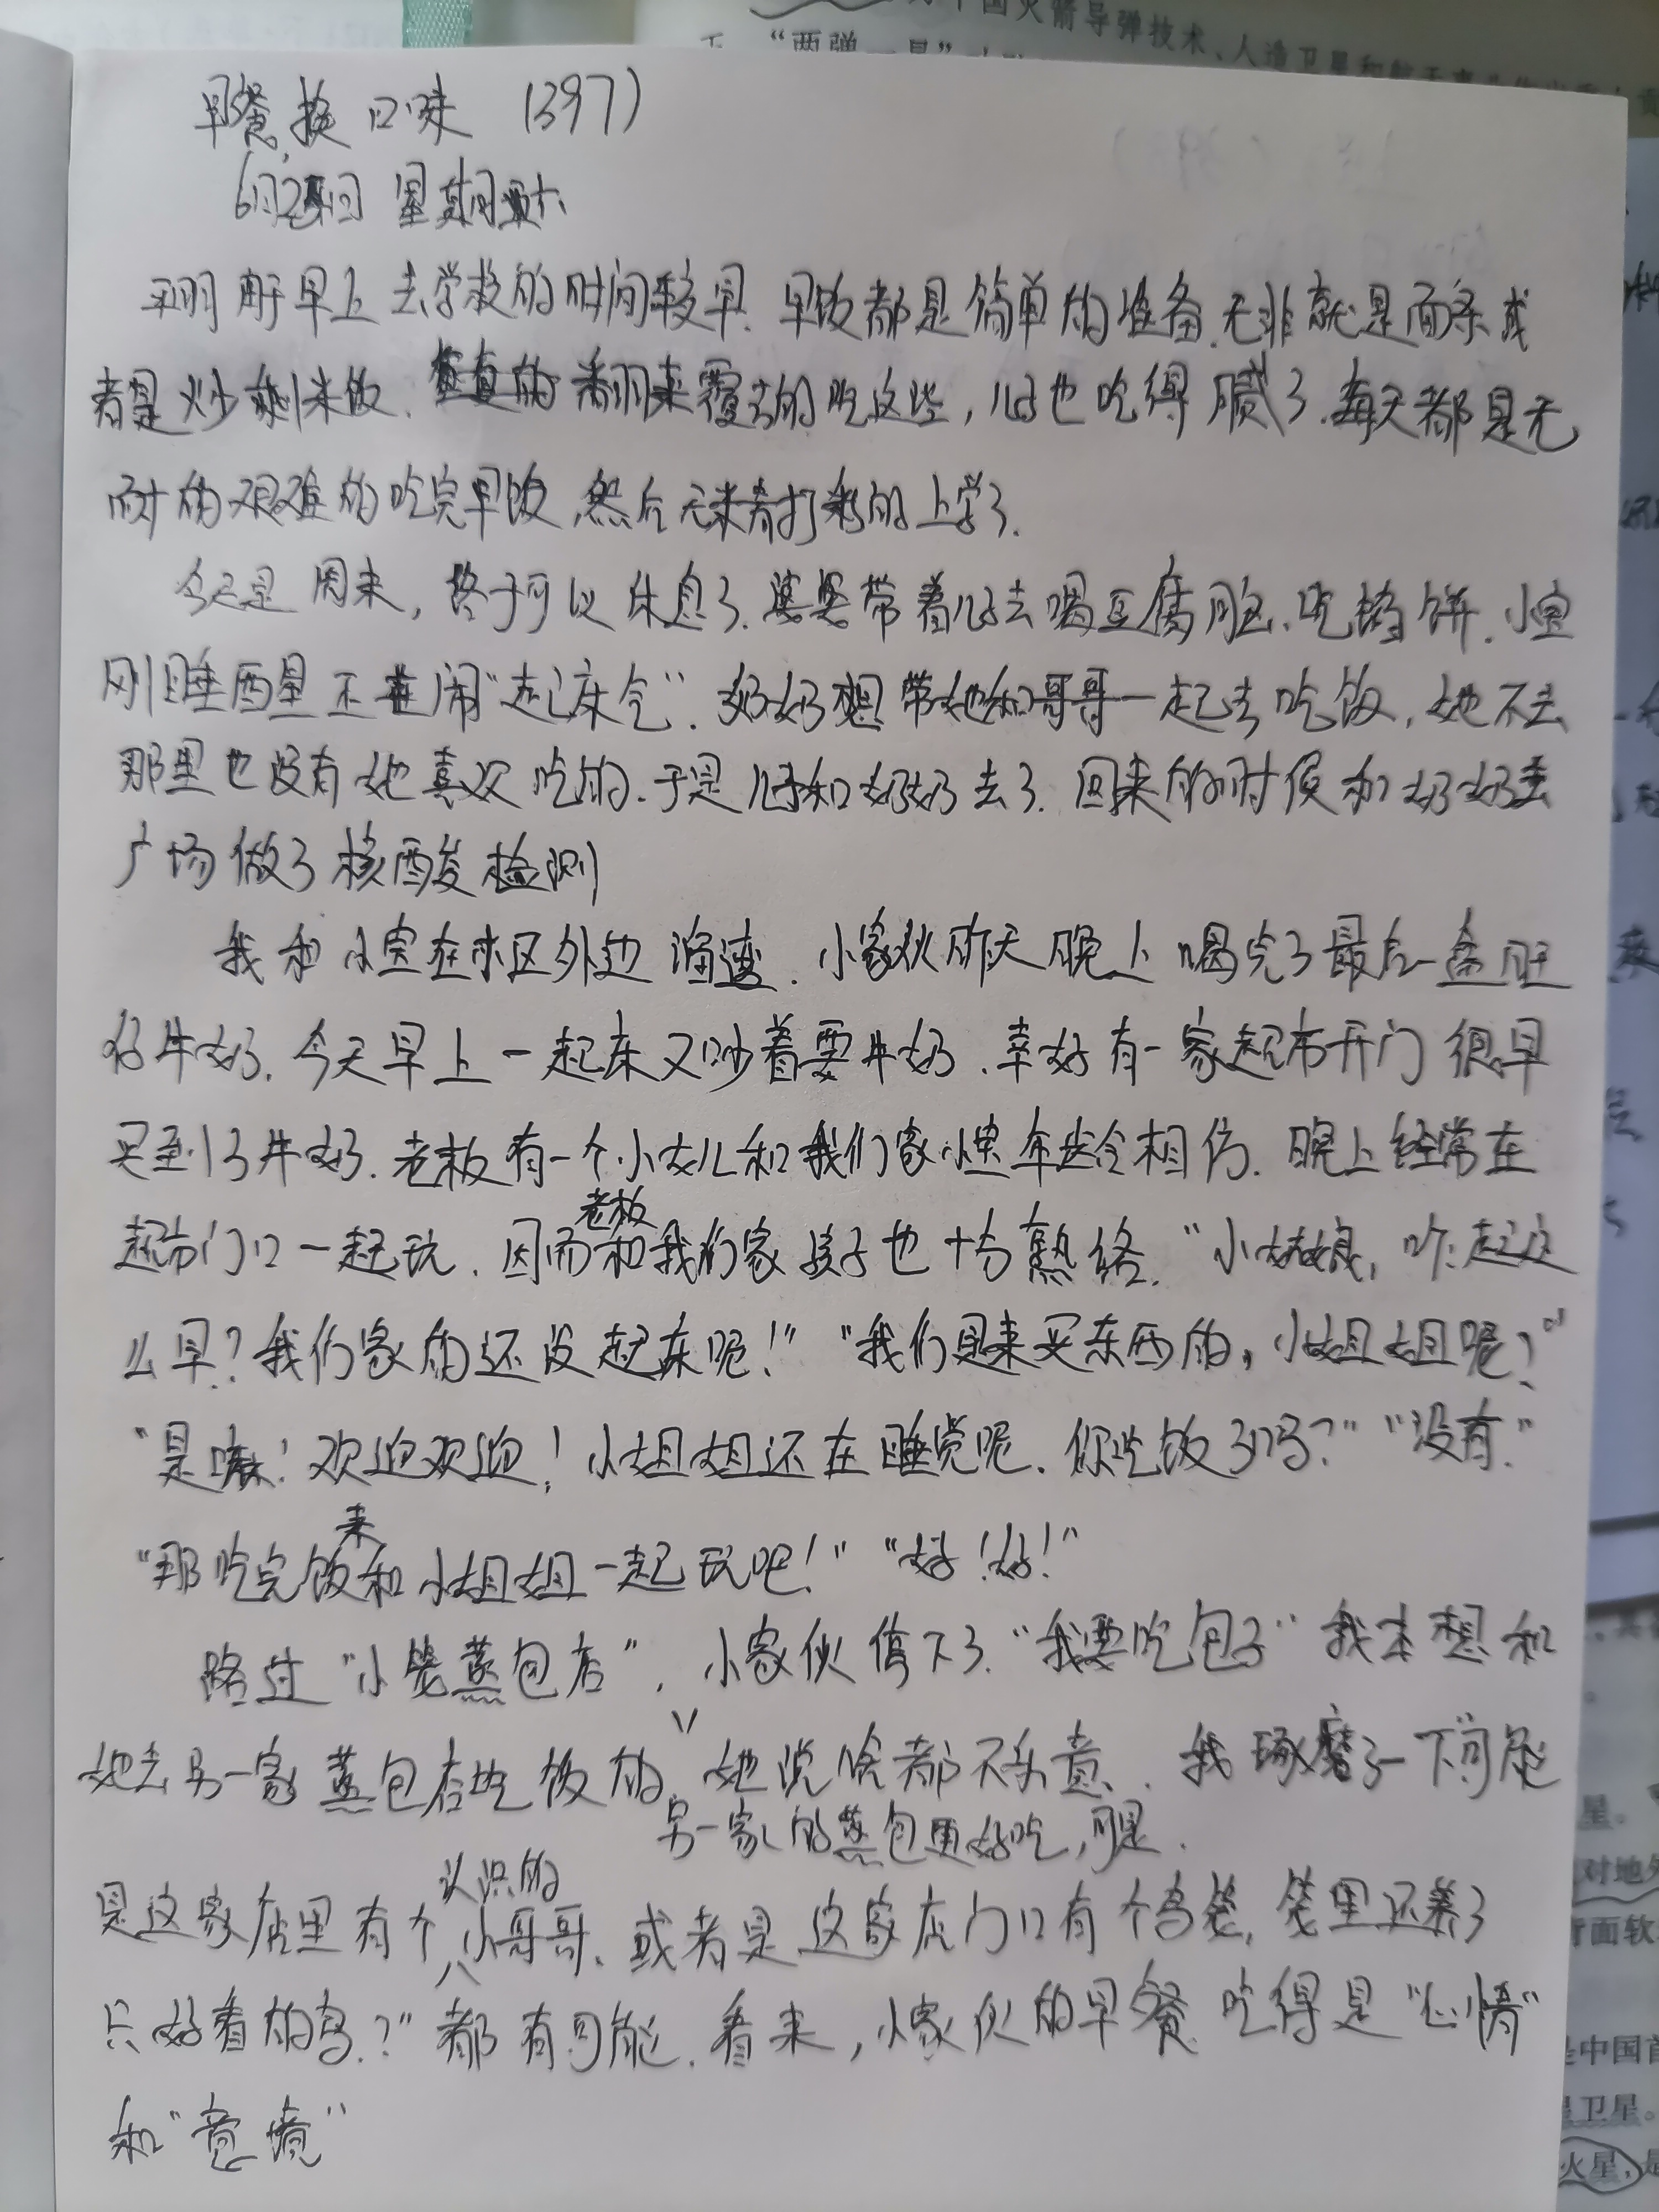 国火箭导弹技术、人造卫星和
“两弹一星”
早餐换口味 (397)
6月2日 星期六
平时由于早上去学校的时间较早.早饭都是简单的准备.无非就是面条或
者是炒剩米饭.翻来覆去的吃这些,儿子也吃得腻了.每天都是无
耐的艰难的吃完早饭,然后无精打彩的上学了.
今天是周末,终于可以休息了.婆婆带着儿子去喝豆腐脑、吃馅饼.小宝
刚睡西星正在闹“起床气”.奶奶想带她和哥哥一起去吃饭,她不去
那里也没有她喜欢吃的.于是儿子和奶奶去了.回来的时候和奶奶去
广场做了核酸检测
我和小宝在小区外边溜达.小家伙昨天晚上喝完了最后一盒旺
仔牛奶.今天早上一起床又吵着要牛奶.幸好有一家超市开门很早
买到了牛奶.老板有一个小女儿和我们家小宝年龄相仿.晚上经常在
超市门口一起玩.因而老板和我们家孩子也十分熟络.“小姑娘,咋起这
么早?我们家的还没起床呢!”“我们是来买东西的,小姐姐呢?”
“是嘛!欢迎欢迎!小姐姐还在睡觉呢.你吃饭了吗?”“没有.”
“那吃完饭来和小姐姐一起玩吧!”“好!好!”
路过“小笼蒸包店”,小家伙停下了.“我要吃包子”我本想和
她去另一家蒸包店吃饭的,另一家的蒸包更好吃,可是.她说啥都不乐意.我琢磨了一下可能
是这家店里有个认识的小哥哥、或者是这家店门口有个鸟笼,笼里还养了
只好看的鸟?”都有可能.看来,小家伙的早餐吃得是“心情”
和“意境”
对地
背面软
是中国首
星卫星。
火星,是